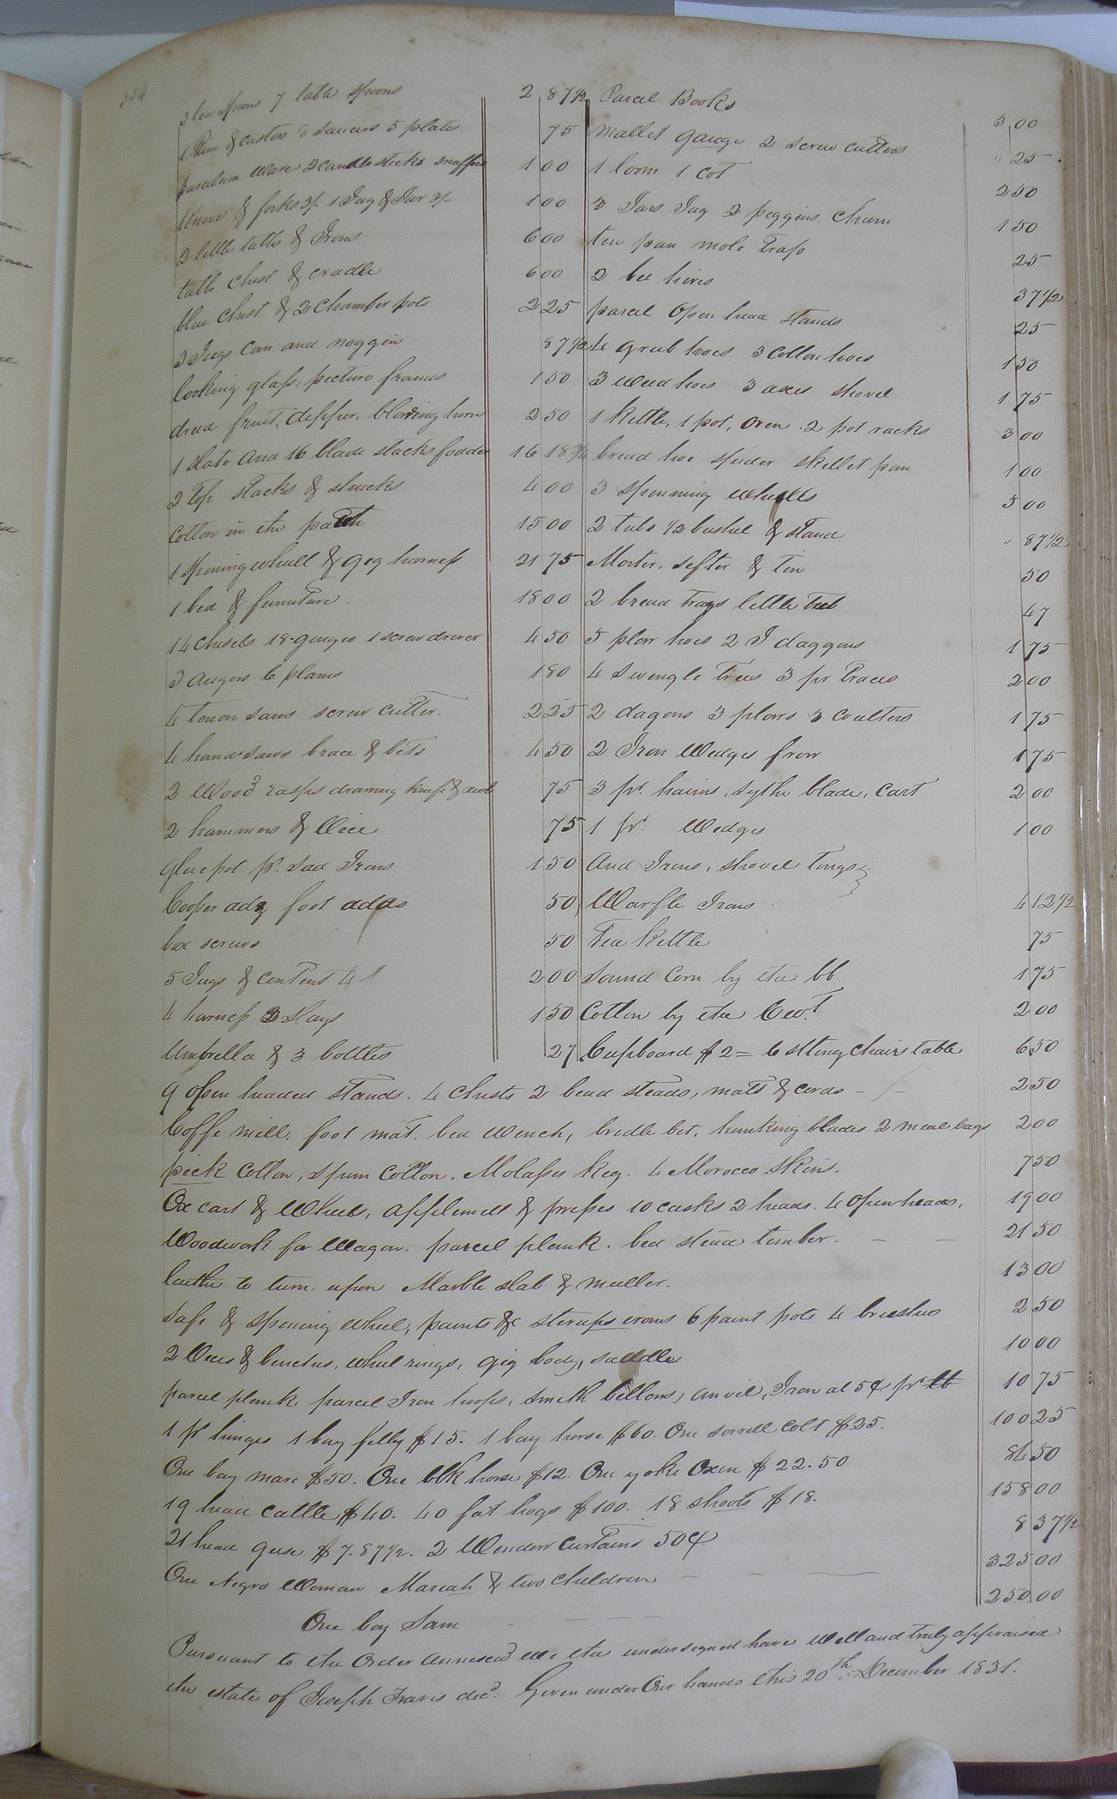 334
3 tea spoons 7 table spoons 2 87½
1 & castors 6 saucers 5 plates 75
ware 2 candle sticks snuffers 1 00
Knives & forks 3/. 1 Jug & Jar 3/ 1 00
2 little tables & Irons 6 00
table chest & cradle 6 00
blue chest & 2 chamber pots 2 25
3 Jugs can and noggin 87½
looking glass, picture frames 1 50
dried fruit, dipper, blowing horn 2 50
1 slate and 16 blade stacks fodder 16 18¾
3 top stacks & shucks 4 00
Cotton in the patch 15 00
1 spinning wheell & gig harness 21 75
1 bed & furniture 18 00
14 chisels 18 gouges 1 screwdriver 4 50
3 augers 6 plains 1 80
4 tenon saws screw cutter. 2 25
4 hand saws brace & bits 4 50
2 wood rasps drawing knife & awl 75
2 hammers & vice 75
glue pot pr. sad Irons 1 50
Cooper adz foot adds 50
box screws 50
5 Jugs & content 4/ 2 00
4 harness 3 slays 1 50
Umbrella & 3 bottles 27
Parcel Books 3 00
mallet gauge 2 screw cutters " 25
1 loom 1 cot 2 50
3 Jars Jug 2 piggins churn 1 50
tin pan mole trap 25
2 bee hives 37½
parcel open head stands 25
4 grub hoes 3 cotton hoes 1 50
3 weed hoes 3 axes shovel 1 75
1 kettle, 1 pot, oven. 2 pot racks 3 00
bread hoe spider skillet pan 1 00
3 spinning wheells 5 00
2 tubs ½ bushel & stand " 87½
Morter, sifter & tin 50
2 bread trays little tub 47
5 plow hoes 2 I daggons 1 75
4 swingle trees 3 pr traces 2 00
2 dagons 3 plows 3 coulters 1 75
2 Iron Wedges frow 1 75
3 pr. haims, sythe blade, cart 2 00
1 pr. Wedges 1 00
And Irons, shovel tongs
Warfle Irons 4 12½
Tea Kettle 75
Sound Corn by the bb 1 75
Cotton by the Cwt 2 00
Cupboard $2= 6 sitting chairs table 6 50
9 open headed stands. 4 chests 2 bead steads, mats & cords - 2 50
Coffe mill, foot mat. bed wench, bridle bit, hunking blades 2 meal bags 2 00
pick Cotton, spun Cotton. Molasses Keg. 4 Morocco skins. 7 50
Ox cart & Wheels, applemill & presses 10 casks 2 heads. 4 open heads. 19 00
Woodwork for Wagon. parcel plank. bed stead timber. - - 21 50
lathe to turn upon Marble slab & muller. 13 00
Safe & spinning wheel, paints &c stirups irons 6 paint pots 4 brushes 2 50
2 Vices & benches, wheel rings, gig body, saddle 10 00
parcel plank, parcel Iron hoops, smith bellows, anvil, Iron at 5¢ pr lb 10 75
1 pr hinges 1 bay filly $15. 1 bay horse $60. One sorrell colt $25. 100 25
One bay mare $50. One blk horse $12. One yoke Oxen $22.50 84 50
19 head cattle $40. 40 fat hogs $100. 18 shoots $18. 158 00
21 head geese $7.87½. 2 Window Curtains 50¢ 8 37½
One Negro Woman Mariah & two children - - 325 00
One boy Sam - - - 250.00
Pursuant to the Order annexed We the undersigned have Well and truly appraised
the estate of Joseph Travis decd. Given under Our hands this 20th December 1831.